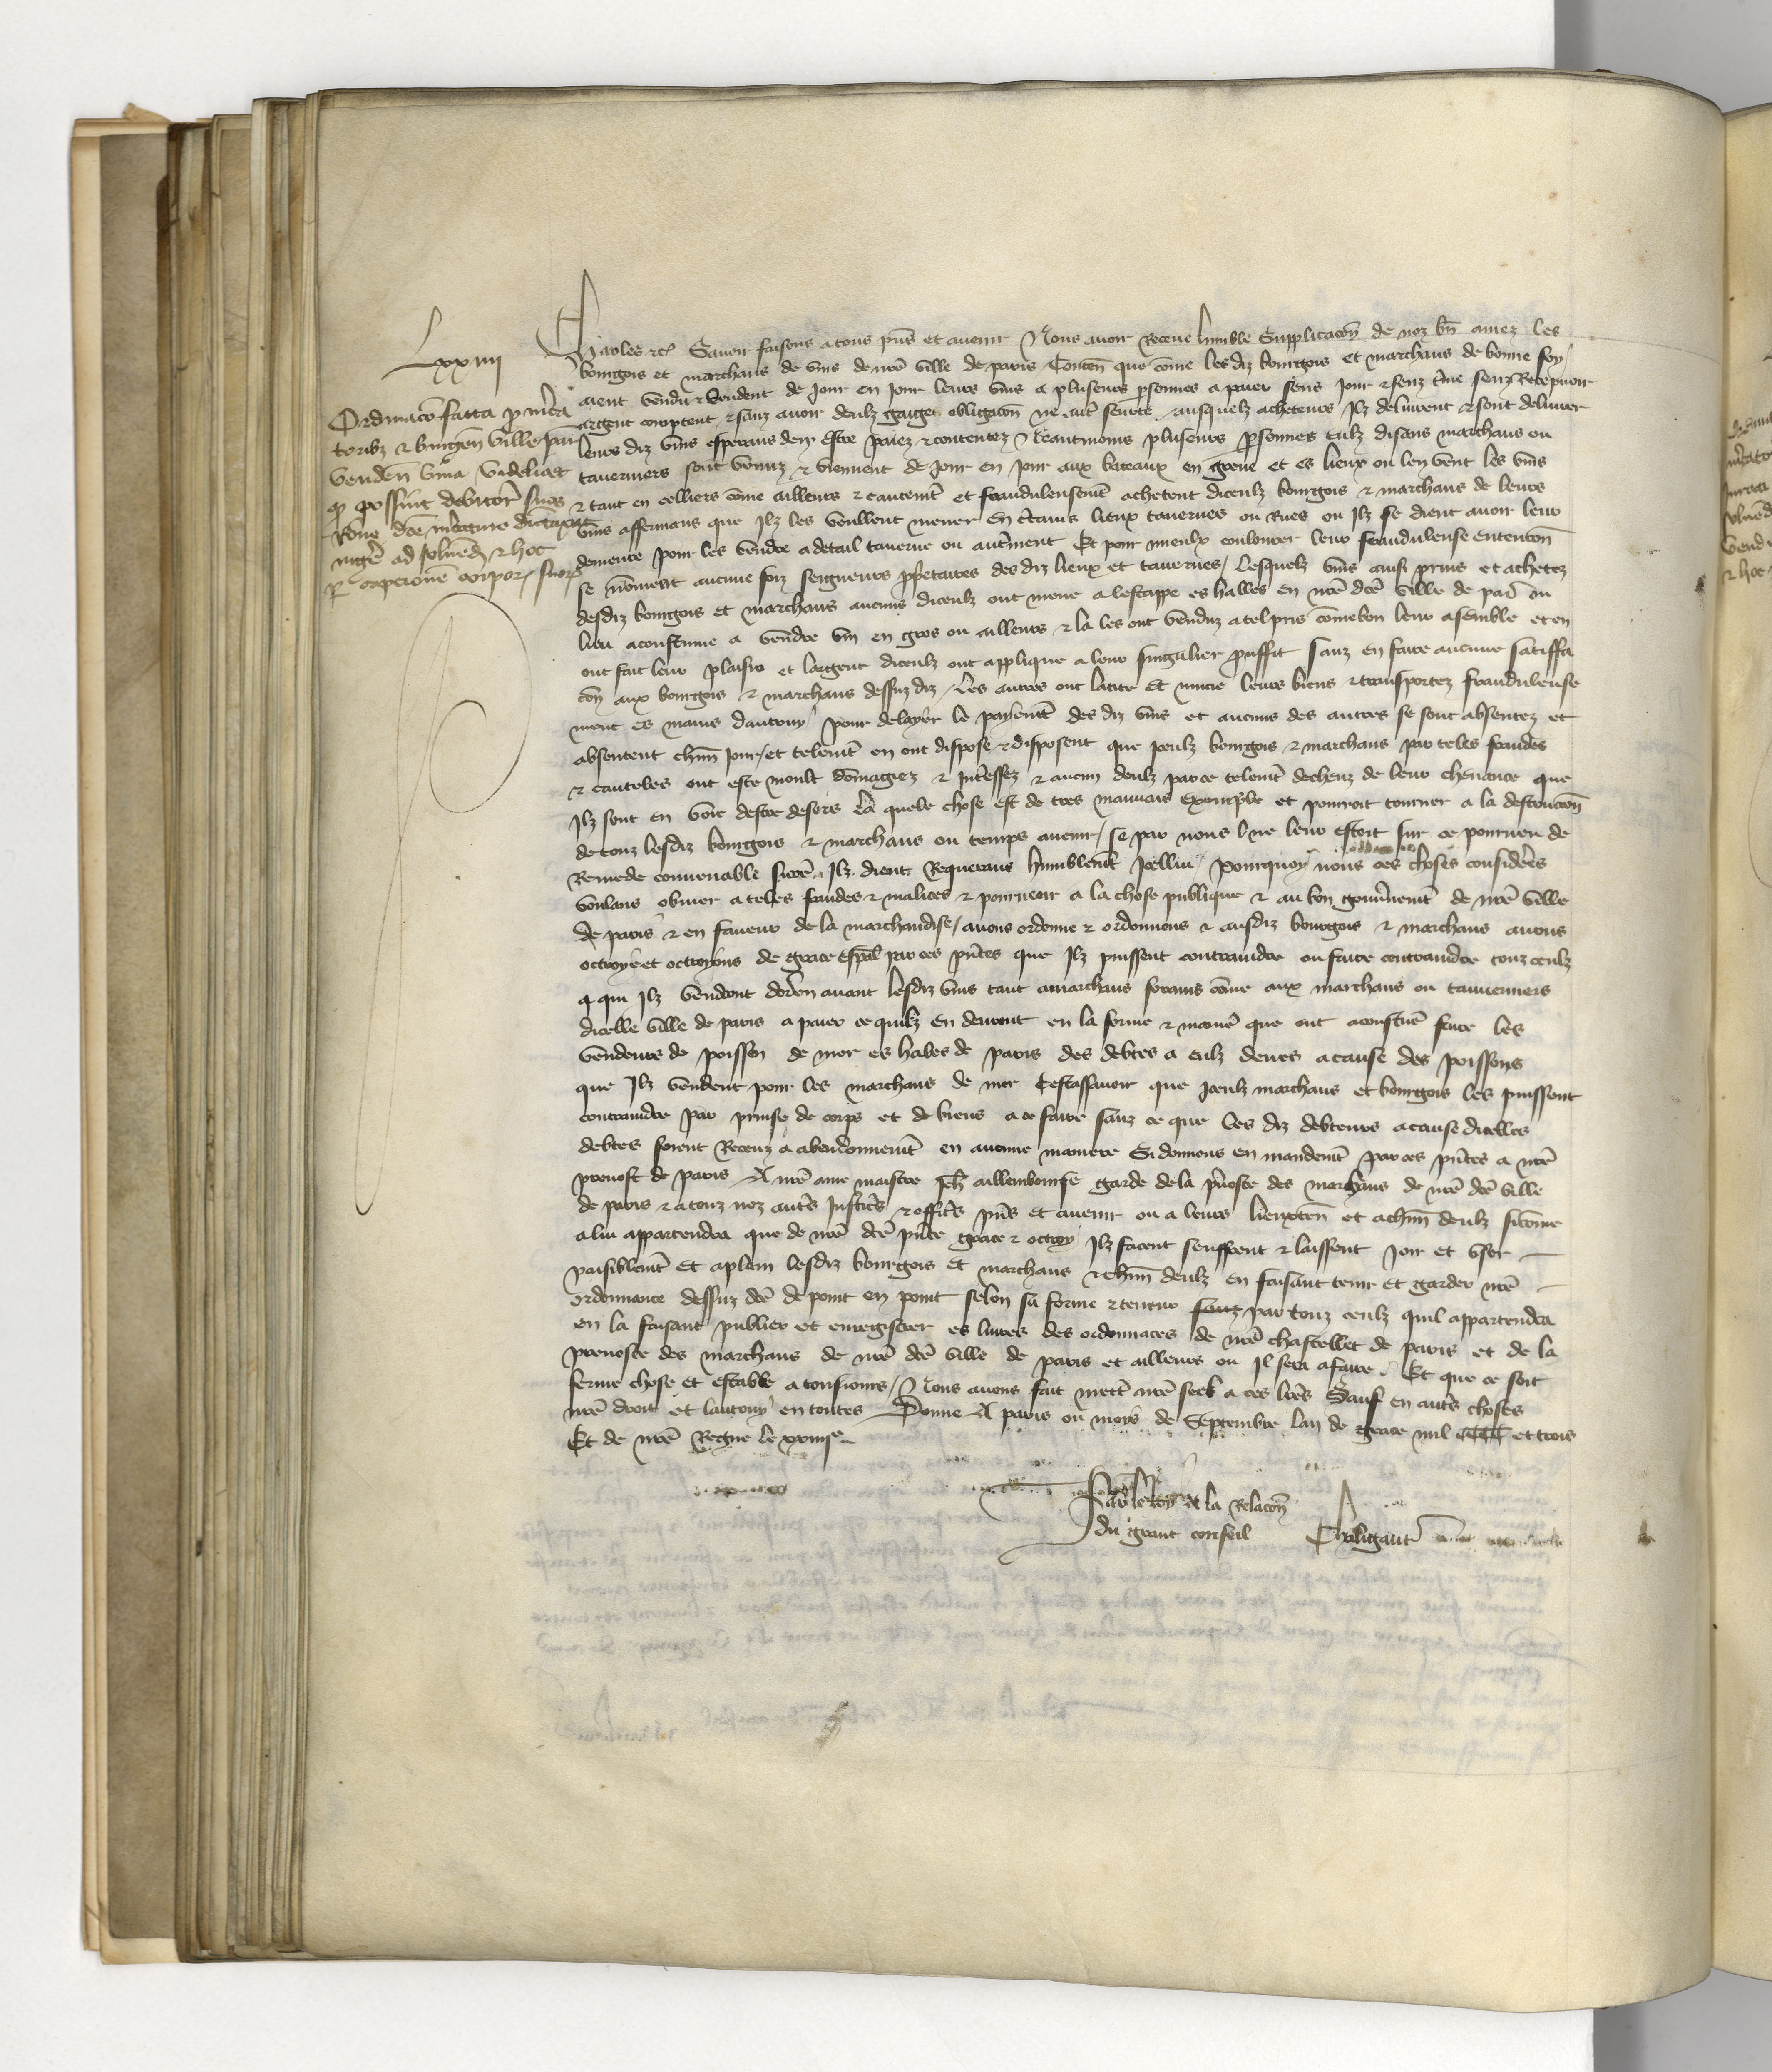 Lxxiiii
Ordinacō facta p m̄ca
toribz & burgēn ville par̄
vendēn vina videlicet
q possint debitor̄ suos
Rōne dc̄e m̄cature
ad solvēd & hoc
p capcionē corpor suor
Charles &c Savoir faisons a tous pn̄s et avenir Nous avoir Receue humble Supplicacōn de noz bn̄ amez les
bourgois et marchans de vins de nr̄e ville de paris Contēn que cōme les diz bourgois et marchans de bonne foy
aient vendu & vendent de jour en jour leurs vins a pluseurs psonnes a paier sens jour & senz t̄me senz Recepvoir
argent comptent & sanz avoir deulz gaiges obligacōn ne aut̄ seurte ausquelz acheteurs Ilz delivrent & font delivrer
leurs diz vins esperans den estre paiez & contentez Neantmoins pluseurs psonnes eulz disans marchans ou
taverniers sont venuz & viennent de jour en jour aux bateaux en greve et es lieux ou len vent les vins
& tant en celliers cōme ailleurs & cautemt̄ et fraudulensemt̄ achetent diceulz bourgois & marchans de leurs
vins affermans que Ilz les veullent mener En c̄tains lieux tavernes ou Rues ou Ilz se dient avoir leur
demeure pour les vendre a detail taverne ou aut̄ment Et pour mieulx coulourer leur fraudulense entencōn
se nōment aucune foiz seigneurs ppetaires des diz lieux et tavernes / Lesquelz vins ainsi prins et achetez
desdiz bourgois et marchans aucuns diceulz ont mene a lestappe es halles en nr̄e dc̄e ville de par̄ ou
lieu acoustume a vendre vin en gros ou ailleurs & la les ont venduz a tel pris comebon leur a semble et en
ont fait leur plaisir et largent diceulz ont applique a leur singulier prouffit sanz en faire aucune satiffa
cōn aux bourgois & marchans dessuz diz / Les autres ont latite Et mucie leurs biens & transportez fraudulense
ment es mains dautruy pour delayer le payemt̄ des diz vins et aucuns des autres se sont absentez et
absentent chūn jour / et telemt̄ en ont dispose & disposent que iceulz bourgois & marchans par teles fraudes
& cauteles ont este moult dōmagiez & int̄essez & aucun deulz par ce telemt̄ decheuz de leur chevance que
Ilz sont en voie destre desers La quele chose est de tres mauvais exemple et pourroit tourner a la destruccōn
de touz lesdiz bourgois & marchans ou temps avenir / se par nous ne leur estoit sur ce pourveu de
Remede convenable Ilz dient Requerans humblemt̄ Icellui Pourquoy nous ces choses considerees
voulans obvier a teles fraudes & malices & pourveoir a la chose publique & au bon gouv̄nemt̄ de nr̄e ville
de paris & en faveur de la marchandise / avons ordonne & ordonnons & ausdiz bourgois & marchans avons
octroye et octroyons de grace espāl par ces pn̄tes que Ilz puissent contraindre ou faire contraindre touz ceulz
a qui Ilz vendront doren avant lesdiz vins tant a marchans forains cōme aux marchans ou taverniers
dicelle ville de paris a paier ce quilz en devront en la forme & manie que ont acoustūe faire les
vendeurs de poisson de mer es hales de paris des debtes a eulz deues a cause des poissons
que Ilz vendent pour les marchans de mer Cestassavoir que iceulz marchans et bourgois les puissent
contraindre par prinse de corps et de biens a ce faire sanz ce que les diz debteurs a cause dicelles
debtes soient Receuz a abendonnemt̄ en aucune maniere Si donnons en mandemt̄ par ces pn̄tes a nr̄e
prevost de paris A nr̄e ame maistre Jeh garde de la p̄voste des marchans de nr̄e dc̄e ville
de paris & a touz noz aut̄s Justic̄s & offic̄s pn̄s et avenir ou a leurs lieuxten̄ et a chūn deulz sicōme
a lui appartendra que de nr̄e dc̄e pn̄te grace & octroy Ilz facent seuffrent & laissent joir et user
paisiblemt̄ Et a plain lesdiz bourgois Et marchans & chūn deulz en faisant tenir Et garder nr̄e
ordonnance dessuz dc̄e de point en point selon sa forme & teneur sanz par touz ceulz quil appartendra
en la faisant publier et enregistrer es livres des ordonnaces de nr̄e chastellet de paris et de la
prevoste des marchans de nr̄e dc̄e ville de paris et ailleurs ou Il sera afaire Et que ce soit
ferme chose et estable a tousiours / Nous avons fait mett̄ nr̄e seel a ces lr̄es Sauf en aut̄s choses
nr̄e droit et lautruy en toutes Donne A paris ou moys de Septembre lan de grace mil CCCC et trois
Et de nr̄e Regne le xxiiiie
Par le Roy A la Relacōn
du grant conseil Chaligaut